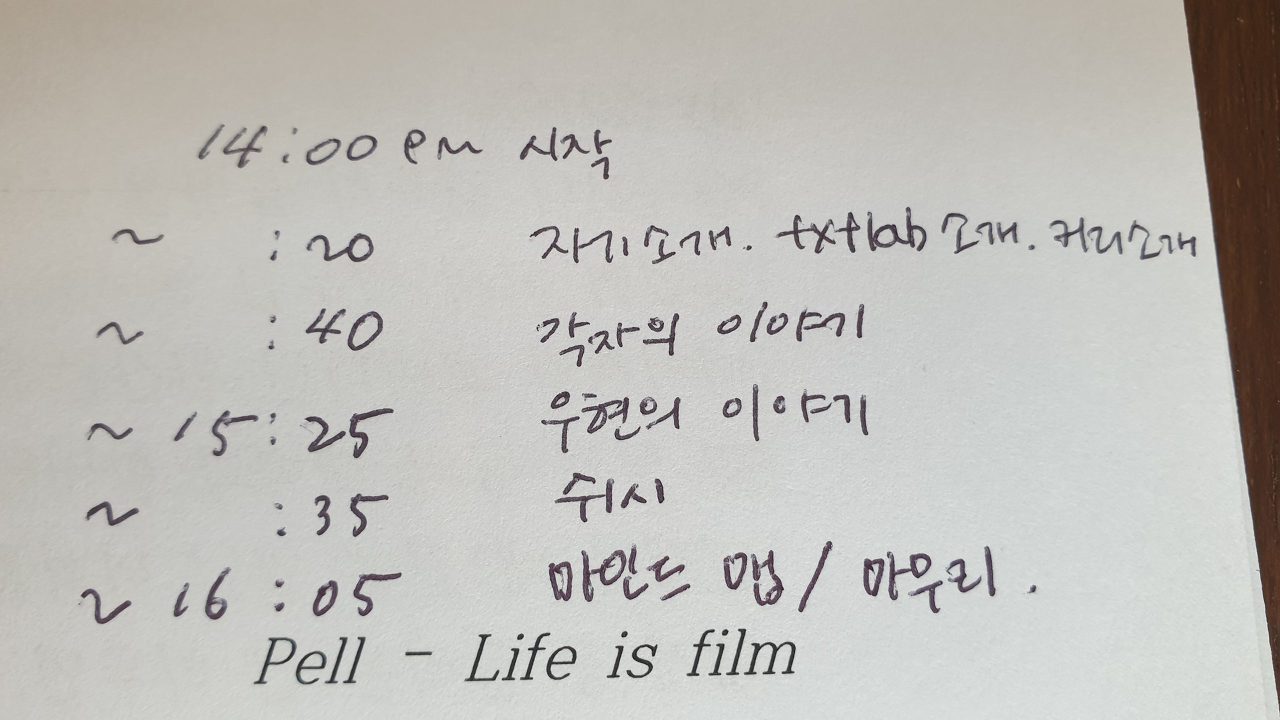 14:00 PM 시작
~ :20 자기소개. txtlab 소개. 커리소개
~ :40 각자의 이야기
~ 15:25 우현의 이야기
~ :35 쉬시
~ 16:05 마인드 맵 / 마무리.
Pell - Life is film